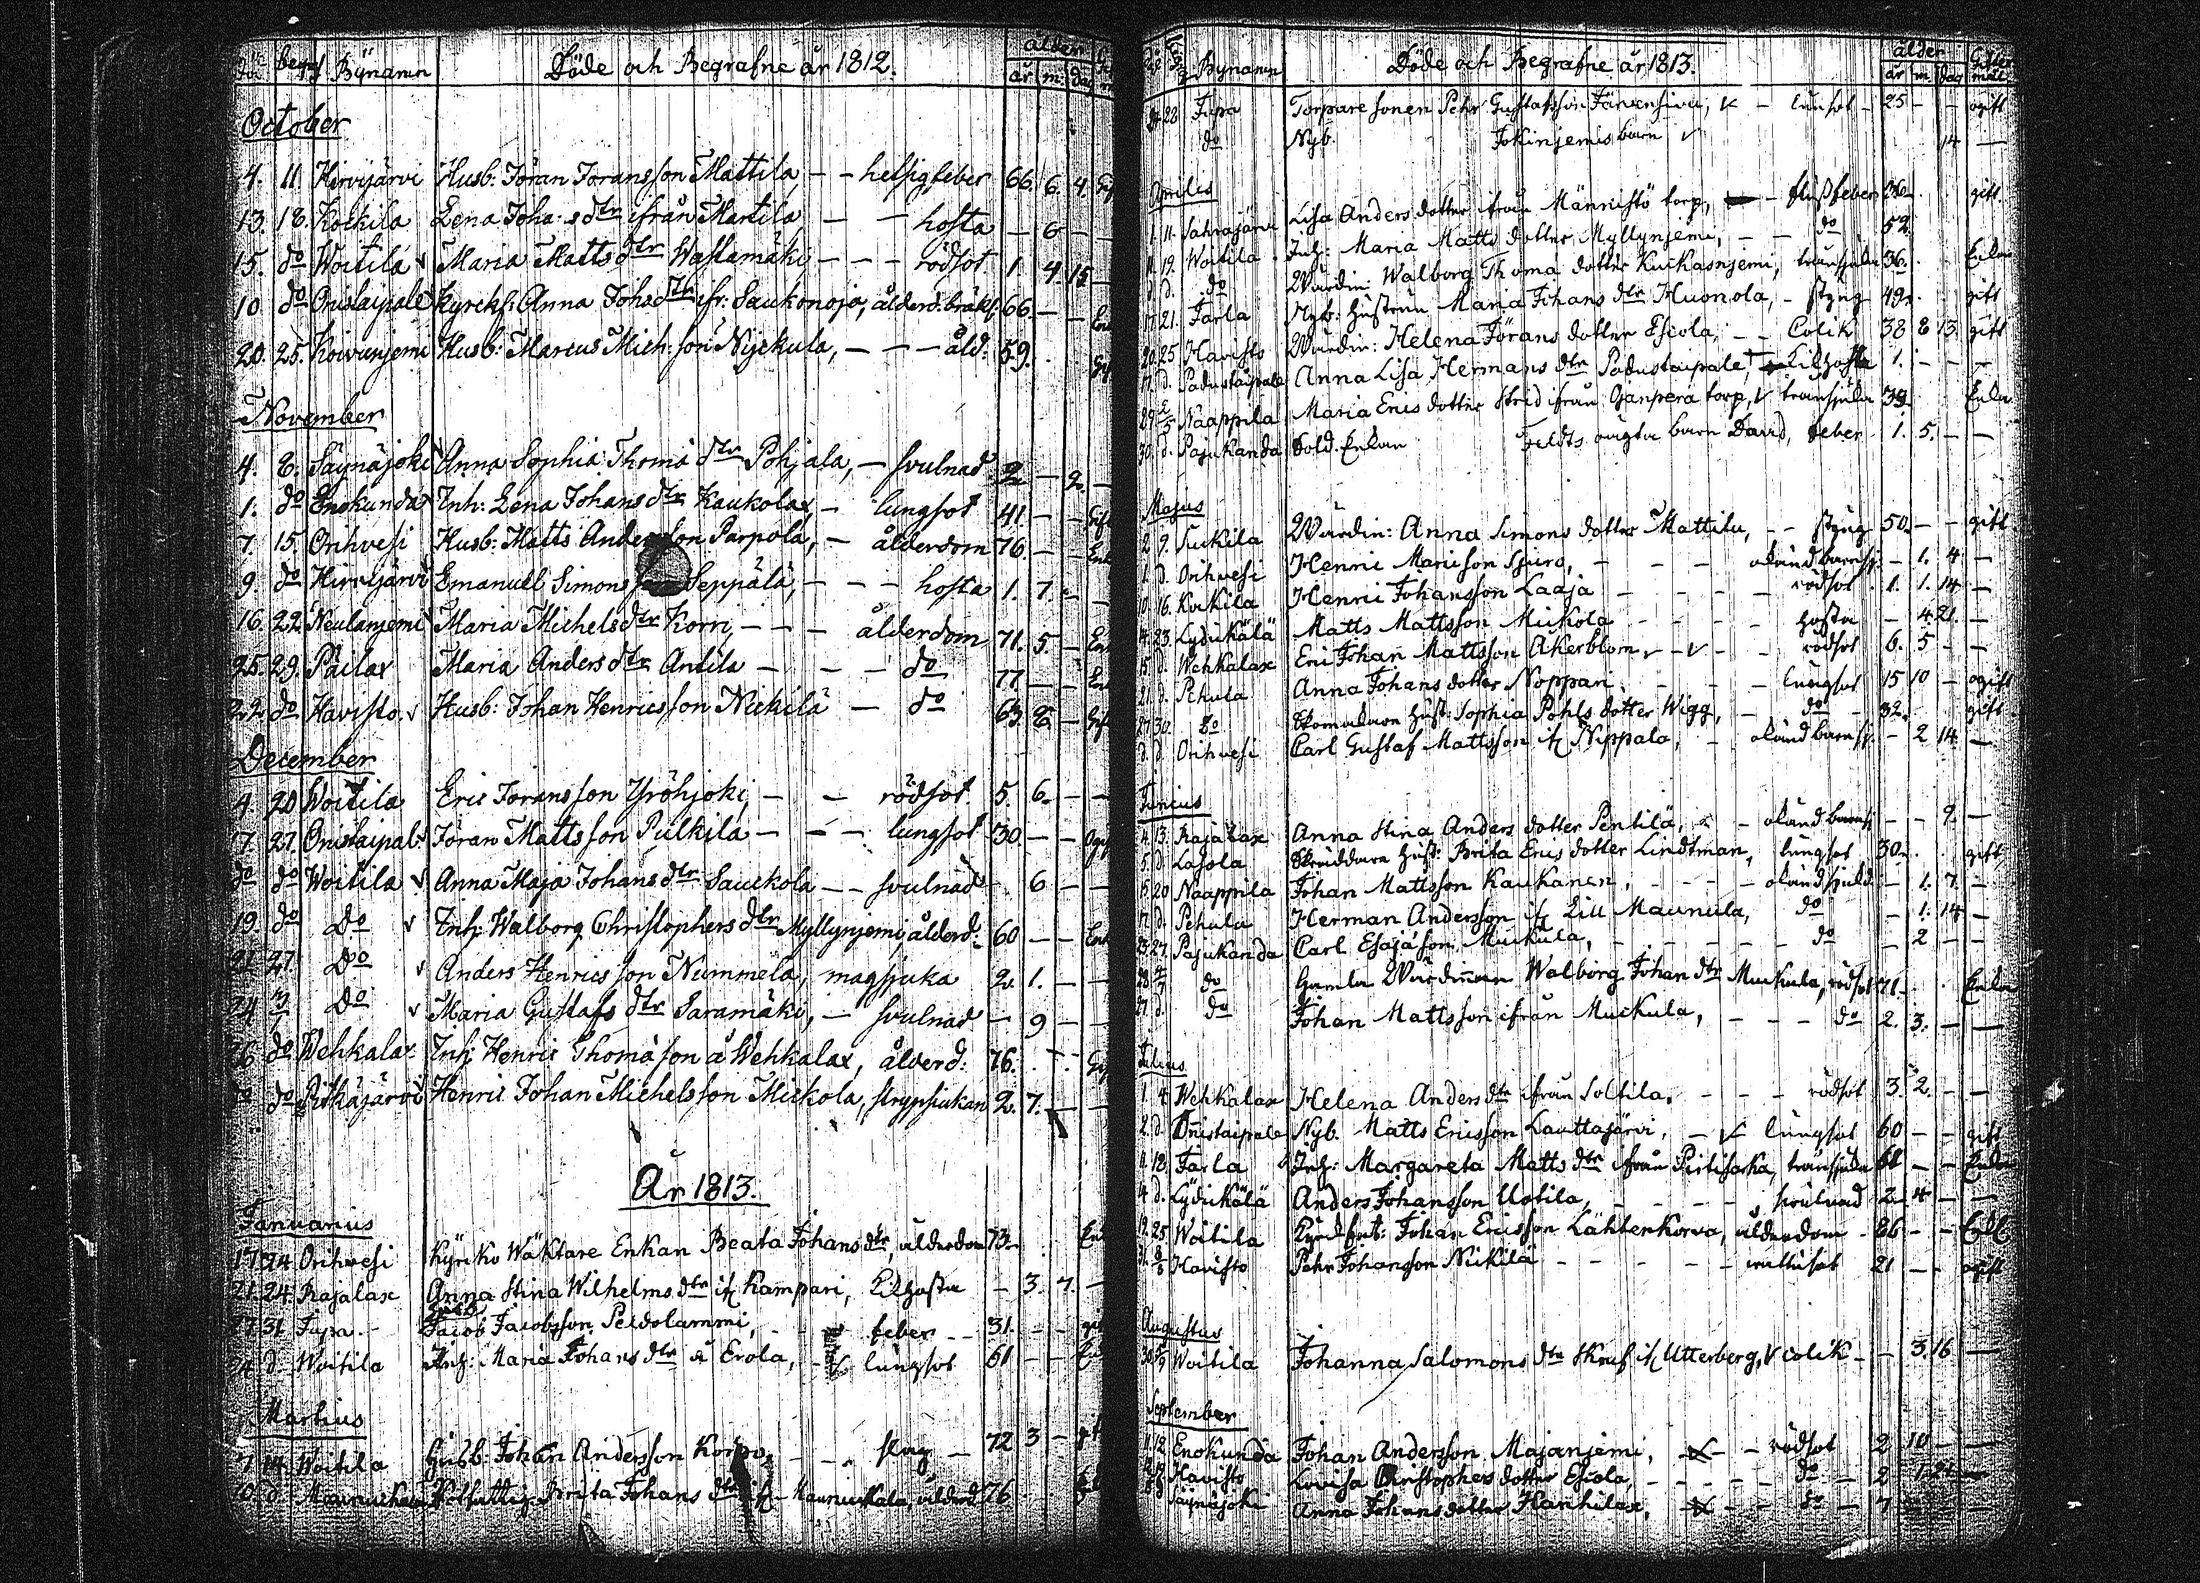 död begr Bynamn Döde och Begrafne år 1812. ålder
år m: dag
October
4. 11. Hirvijärvi Husb: Jöran Joransson Mattila, – – hetsig feber 66. 6. 4. Gif
13. 18. Kockila Lena Joha:s dtr ifrån Martila – – hosta – 6 – –
15. do Woitila Maria Matts dtr Wastamäki – – – rödsot 1 4. 15 –
10 do Onistaipale Kyrckf: Anna Johs dtr ifr: Saukonoja, ålderd: bräkl: 66. – – Enk
20. 25. Koivunjemi Husb: Marcus Mich: son Nyckula, – – – åld: 59. Gif
November
4. 8. Säynäjoki Anna Sophia Thomä dtr Pohjala, – svulnad 2 – 2. –
1. do Enokunda Inh: Lena Johans dtr Kaukolax – lungsot 41 – – Gift
7. 15. Orihvesi Husb: Matts Andersson Parpola, – ålderdom 76. – – Enk
9. do Hirvijärvi Emanuel Simonsson Seppälä, – – – hosta 1. 7. – –
16. 22. Neulanjemi Maria Michels dtr Korri, – – – ålderdom 71. 5 – Enk
25. 29. Päilax Maria Anders dtr Antila – – – do 77 – – Enk
22. do Havisto Husb: Johan Henricsson Neckilä – do 63. 8 – Gift
December
4. 20 Woitila Eric Joransson Yröhjoki, – – rödsot 5. 6. – –
7. 27. Onistaipale Jöran Mattsson Pulkila – – – lungsot 30 – – Ogif
do do Woitila Anna Maja Johans dtr Sauckola – – svulnad – 6 – –
19. do Do Inh: Walborg Christophers dtr Myllynjemi ålderd: 60 – – Enk
21 27. Do Anders Henricsson Nummela, magsjuka 2. 1. – –
24 Do Maria Gustafs dtr Saramäki, – svulnad – 9 – –
26 do Wehkalax Inh: Henric Thomäson å Wehkalax, ålderd: 76. Gif
do Pitkäjärvi Henric Johan Michelsson Mickola, strypsiukan 2. 7. – –
År 1813.
Januarius
17. 24. Orihvesi Kyrko Wäktare Enkan Beata Johans dtr, ålderdom 73. Enk
21. 24. Rajalax Anna Stina Wilhelms dtr if: Kampari, Kikhosta – 3. 7. –
27. 31. Jupa Jacob Jacobsson Peldolammi, feber – – 31. – – gift
24 d. Woitila Inh: Maria Johans dtr å Erola, lungsot 61 – – Enk
Martius
7. 14. Woitila Husb: Johan Andersson Korpo, – – stng – 72 3 – gt
10. d. Maunukkala Utfattig Brita Johans dtr if: Maunukkala ålderd 76.
Bynamn Döde och Begrafne år 1813. ålder Giftermål
år m: dag
28 Jupa Torpare sonen Pehr Gustafsson Järvensivu, – lungsot – 25 – – ogift
do Nyb. Jokinjemis barn 14 –
Aprilis
1. 11. Sahrajärvi Lisa Anders dotter ifrån Männistö torp, – flussfeber 36. gift
11. 19. Woitila Inh: Maria Matts dotter Myllynjemi, – – do 52.
d. do Wärdin: Walborg Thoma dotter Kuckasnjemi, tränsjuka 36. Enka
17. 21. Jarla Nyb: Hustrun Maria Johans dtr Huonola, – styng 49. gift
20. 25 Havisto Wärdin: Helena Jörans dotter Eskola, – – Colik 38 8 13. gift
17. d. Padustaipale Anna Lisa Hermans dtr Padustaipale, Kikhosta 1. – – –
29. 2/5 Naappila Maria Erics dotter Strid ifrån Ojanperä torp, tränsjuka 39. Enka
30. d. Pajukanda Sold. Enkan Feldts oägta barn David, feber 1. 5. – –
Majus
2. 9. Kuckila Wärdin: Anna Simons dotter Mattila, – – styng 50. – – gift
1. d. Orihvesi Henric Maricson Sjuro, – – okänd barnsj: – 1. 4 –
10. 16. Kockila Henric Johansson Laaja – – – – rödsot 1. 1. 14 –
14. 23. Lyduckälä Matts Mattsson Muckola – – – – hosta – 4 21. –
15. d. Wehkalax Eric Johan Mattsson Åkerblom, – – – rödsot 6. 5 – –
21. d. Pehula Anna Johans dotter Noppari – – – lungsot 15 10 – ogift
27. 30. do Skomakaren Hust: Sophia Pohls dotter Wigg, – do 32. gift
d. d. Orihvesi Carl Gustaf Mattsson if: Nippala, – okänd barnsj: – 2 14 –
Junius
4. 13. Rajalax Anna Stina Anders dotter Pentilä, – okänd barnsj – – 9. –
5. d. Lasola Skräddaren Hust: Brita Erics dotter Lindtman, lungsot 30. gift
15. 20 Naappila Johan Mattsson Kaukanen, – – – okänd sjukd – 1. 7. –
17. d. Pehula Herman Andersson if: Lill Maunula, do – 1. 14 –
23. 27. Pajukanda Carl Esajäson Muckula, – – – – – do – 2 – –
28 4/7 do Gamla Wärdinnan Walborg Johan dtr Muckula, rödsot 71. Enka
27. d. do Johan Mattsson ifrån Muckula, – – – do 2. 3. – –
Julius
1. 4 Wehkalax Helena Anders dtr ifrån Soltila, – – – rödsot 3. 2. – –
2. d. Onistaipale Nyb. Matts Ericsson Lauttajärvi, – lungsot 60 – – gift
11. 18. Jarla Inh: Margareta Matts dtr ifrån Pirtisarka, tränsjuka 61 – – Enka
4. d. Lyduckälä Anders Johansson Uotila, – – – – svulnad 2 4 – –
19. 25. Woitila Kyrckfört: Johan Ericsson Lähtenkorva, ålderdom – 86 – – Enkl
31. 8/8 Havisto Pehr Johansson Nickilä – – – – rattusot 21 – – ogift
Augustus
Woitila Johanna Salomons dtr Skruf if: Utterberg, colik – – 3. 16 –
September
11. 12. Enokunda Johan Andersson Majanjemi, – – rödsot 2 10 – –
Havisto Lovisa Christophers dotter Eskola, – – – – do – 2 1. 21 –
Säynäjoki Anna Johans dotter Hanhilax, – – do – 7 – –